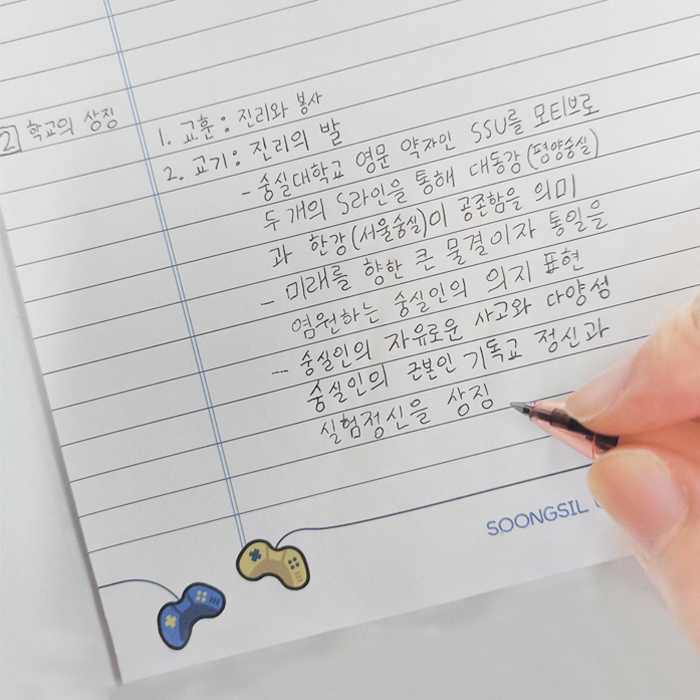 2 학교의 상징
1. 교훈 : 진리와 봉사
2. 교기 : 진리의 발
- 숭실대학교 영문 약자인 SSU를 모티브로
두 개의 S라인을 통해 대동강(평양숭실)
과 한강(서울숭실)이 공존함을 의미
- 미래를 향한 큰 물결이자 통일을
염원하는 숭실인의 의지 표현
- 숭실인의 자유로운 사고와 다양성
숭실인의 근본인 기독교 정신과
실험정신을 상징
SOONGSIL